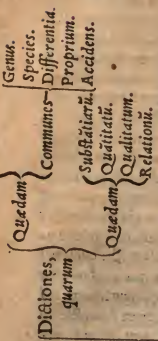 Dictiones,
quarum
Quædam
Communes
Genus.
Species.
Differentia.
Proprium.
Accidens.
Quædam
Substātiarū.
Quātitatū.
Qualitatum.
Relationū.